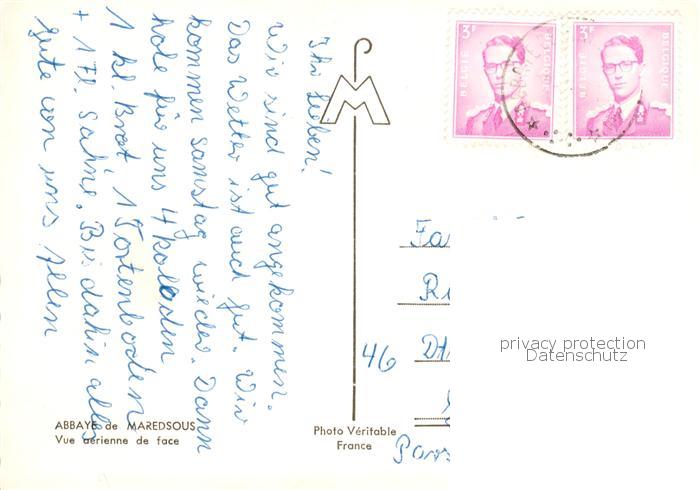 Ihr Lieben!
Wir sind gut angekommen.
Das Wetter ist auch gut. Wir
kommen Samstag wieder. Dann
hole für uns 4 Koladen
1 kl. Brot, 1 Tortenboden
+ 1 Fl. Sahne. Bis dahin alles
gute von uns Allen
ABBAYE de MAREDSOUS
Vue aérienne de face
Photo Véritable
France
3F
BELGIE BELGIQUE
3F
BELGIE BELGIQUE
Fa
46
Dt
privacy protection
Datenschutz